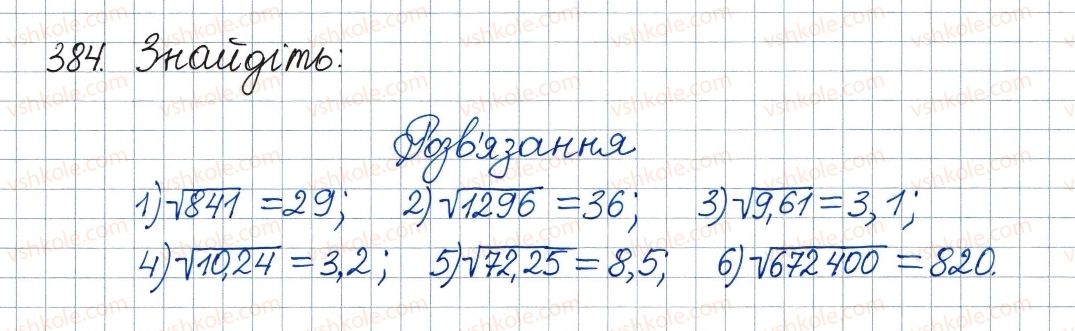 384. Знайдіть:
Розв'язання
1) √841 = 29; 2) √1296 = 36; 3) √9,61 = 3,1;
4) √10,24 = 3,2; 5) √72,25 = 8,5; 6) √672400 = 820.